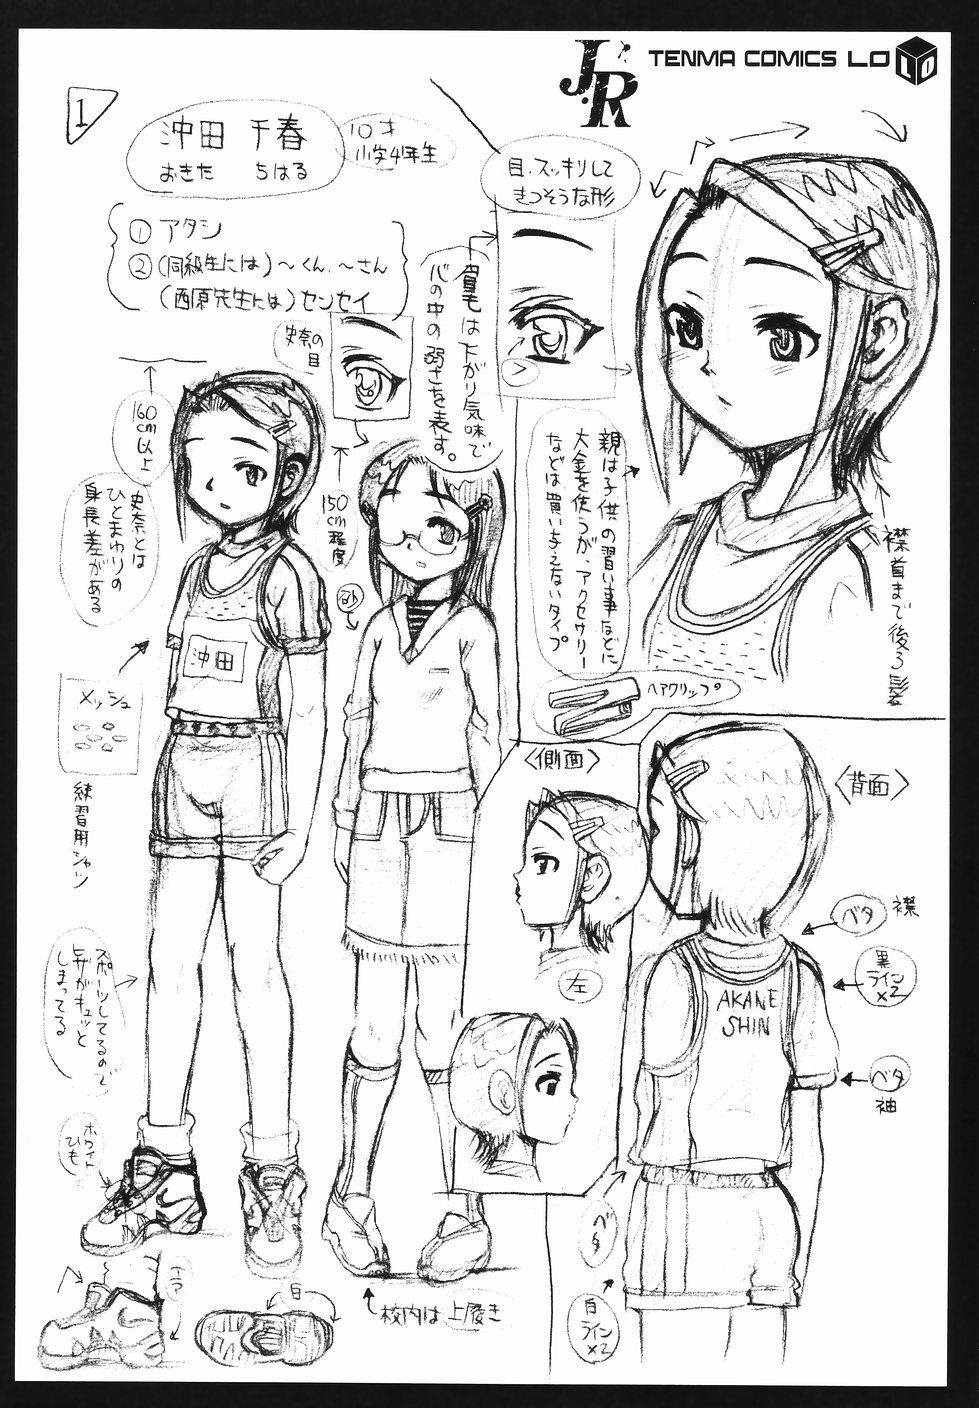 JR
TENMA COMICS LO
LO
1
沖田 千春
おきた ちはる
10才
小学4年生
① アタシ
②(同級生には)〜くん、〜さん
(西原先生には)センセイ
目、スッキリして
きつそうな形
眉毛は下がり気味で
心の中の弱さを表す。
史奈の
目
160
cm
以上
史奈とは
ひとまわりの
身長差がある
150
cm
程度
親は子供の習い事などに
大金を使うが、アクセサリー
などは買い与えないタイプ
ヘアクリップ
襟首まで後ろ髪
沖田
メッシュ
練習用シャツ
〈側面〉
左
〈背面〉
ベタ
襟
黒
ライン
×2
AKANE
SHIN
ベタ
袖
スポーツしてるので
しまってる
ホワイト
ひも
エア
白
校内は上履き
ベタ
白
ライン
×2